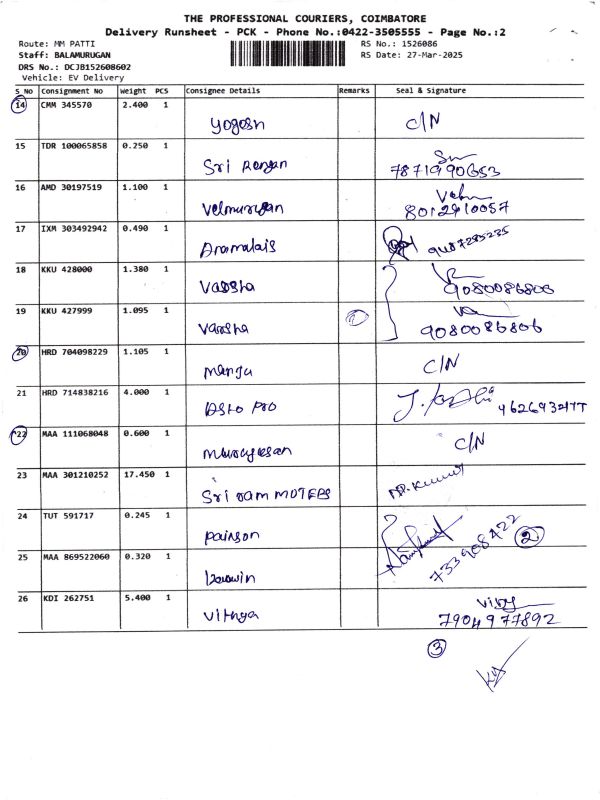 THE PROFESSIONAL COURIERS, COIMBATORE
Delivery Runsheet - PCK - Phone No.:0422-3505555 - Page No.:2
Route: MM PATTI RS No.: 1526086
Staff: BALAMURUGAN RS Date: 27-Mar-2025
DRS No.: DCJB152608602
Vehicle: EV Delivery
S_No Consignment No Weight PCS Consignee Details Remarks Seal & Signature
14 CMM 345570 2.400 1
Yogesh C/N
15 TDR 100065858 0.250 1
Sri Rangan 7871990653
16 AMD 30197519 1.100 1
Velmurugan 8012910057
17 IXM 303492942 0.490 1
18 KKU 428000 1.380 1
Varsha 9080086806
19 KKU 427999 1.095 1
Varsha 9080086806
20 HRD 704098229 1.105 1
Manju C/N
21 HRD 714838216 4.000 1
Asto Pro
22 MAA 111068048 0.600 1
C/N
23 MAA 301210252 17.450 1
Sri ram MOTERS
24 TUT 591717 0.245 1
2
25 MAA 869522060 0.320 1
26 KDI 262751 5.400 1
Vithya 7904977892
3